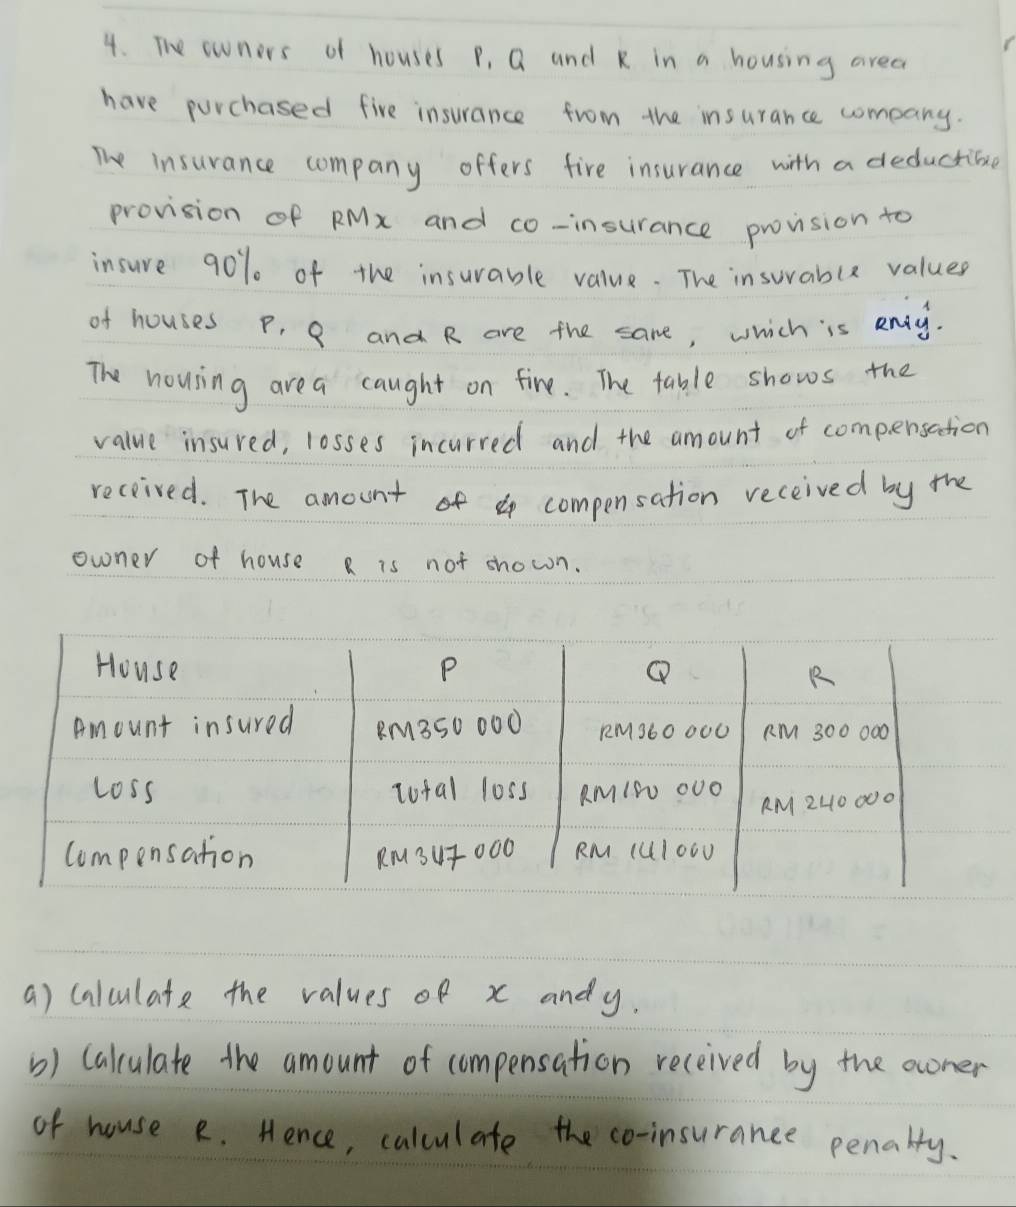 4. The owners of houses P, Q and R in a housing area
have purchased fire insurance from the insurance company.
The insurance company offers fire insurance with a deductible
provision of RMx and co-insurance provision to
insure 90% of the insurable value. The insurable values
of houses P, Q and R are the same, which is RMy.
The housing area caught on fire. The table shows the
value insured, losses incurred and the amount of compensation
received. The amount of compensation received by the
owner of house R is not shown.
House P Q R
Amount insured RM350 000 RM360 000 RM 300 000
Loss Total loss RM180 000 RM 240 000
Compensation RM347 000 RM 141 000
a) Calculate the values of x and y.
b) Calculate the amount of compensation received by the owner
of house R. Hence, calculate the co-insurance penalty.